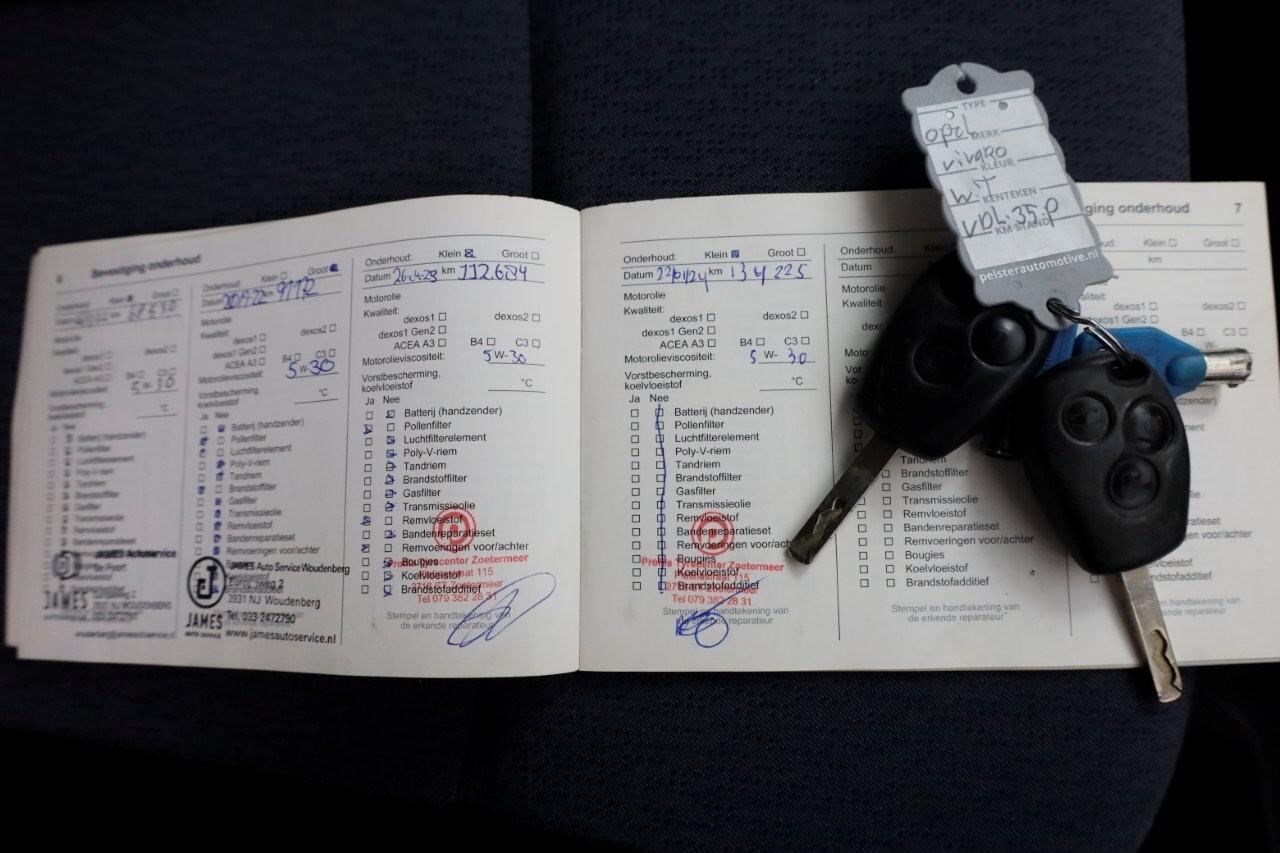 TYPE
opel
MERK
vivaro
KLEUR
wit
KENTEKEN
VDL.35.P
KM STAND
pelsterautomotive.nl
6 Bevestiging onderhoud
Onderhoud: Klein Groot
5 W-30
Batterij (handzender)
Pollenfilter
Luchtfilterelement
Poly-V-riem
Tandriem
Brandstoffilter
Gasfilter
Transmissieolie
Remvloeistof
JAMES Autoservice
JAMES
3931 NJ WOUDENBERG
Onderhoud: Klein Groot
Datum km 97172
Motorolie
Kwaliteit: dexos1
dexos1 Gen2 dexos2
ACEA A3 B4 C3
Motorolieviscositeit: 5 W-30
Vorstbescherming,
koelvloeistof °C
Ja Nee
Batterij (handzender)
Pollenfilter
Luchtfilterelement
Poly-V-riem
Tandriem
Brandstoffilter
Gasfilter
Transmissieolie
Remvloeistof
Bandenreparatieset
Remvoeringen voor/achter
JAMES Auto Service Woudenberg
3931 NJ Woudenberg
Tel. 033-2472790
JAMES
AUTO SERVICE
www.jamesautoservice.nl
Onderhoud: Klein Groot
Datum 26-4-23 km 112.684
Motorolie
Kwaliteit:
dexos1 dexos2
dexos1 Gen2
ACEA A3 B4 C3
Motorolieviscositeit: 5 W-30
Vorstbescherming,
koelvloeistof °C
Ja Nee
Batterij (handzender)
Pollenfilter
Luchtfilterelement
Poly-V-riem
Tandriem
Brandstoffilter
Gasfilter
Transmissieolie
Remvloeistof
Bandenreparatieset
Remvoeringen voor/achter
Bougies
Koelvloeistof
Brandstofadditief
Profile Tyrecenter Zoetermeer
Platinastraat 115
2718 ST Zoetermeer
Tel 079 362 28 31
Stempel en handtekening van
de erkende reparateur
Onderhoud: Klein Groot
Datum km 134225
Motorolie
Kwaliteit:
dexos1 dexos2
dexos1 Gen2
ACEA A3 B4 C3
Motorolieviscositeit: 5 W-30
Vorstbescherming,
koelvloeistof °C
Ja Nee
Batterij (handzender)
Pollenfilter
Luchtfilterelement
Poly-V-riem
Tandriem
Brandstoffilter
Gasfilter
Transmissieolie
Remvloeistof
Bandenreparatieset
Remvoeringen voor/acht
Bougies
Koelvloeistof
Brandstofadditief
Profile Tyrecenter Zoetermeer
Platinastraat 115
2718 ST Zoetermeer
Tel 079 362 28 31
Stempel en handtekening van
de erkende reparateur
Onderhoud:
Datum
Motorolie
Kwaliteit:
Tandriem
Brandstoffilter
Gasfilter
Transmissieolie
Remvloeistof
Bandenreparatieset
Remvoeringen voor/achter
Bougies
Koelvloeistof
Brandstofadditief
Stempel en handtekening van
de erkende reparateur
ging onderhoud 7
oud: Klein Groot
km
aliteit:
dexos2
dexos1 Gen2
B4 C3
W-
°C
Koelvloeistof
Brandstofadditief
Stempel en handtekening van
de erkende reparateur